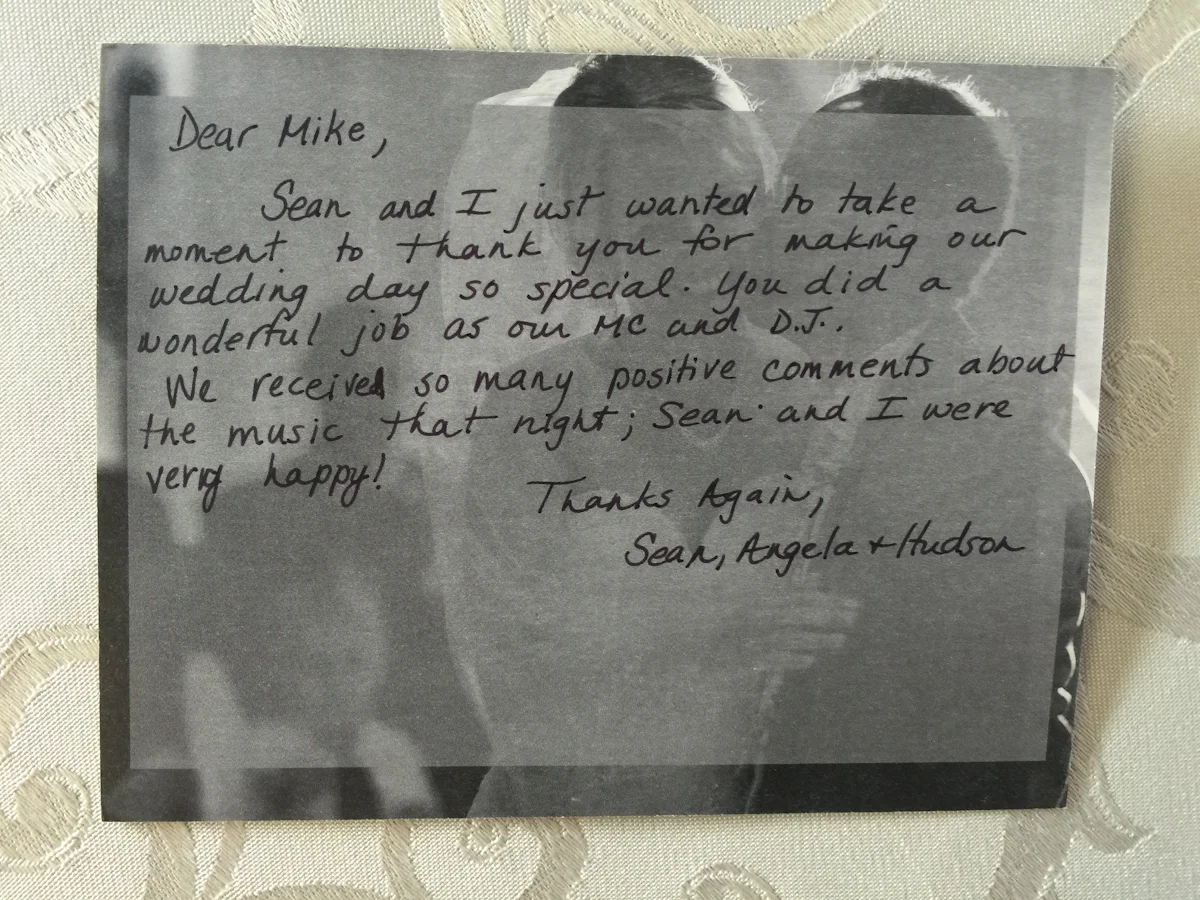 Dear Mike,
Sean and I just wanted to take a
moment to thank you for making our
wedding day so special. You did a
wonderful job as our MC and D.J..
We received so many positive comments about
the music that night; Sean and I were
very happy!
Thanks Again,
Sean, Angela + Hudson